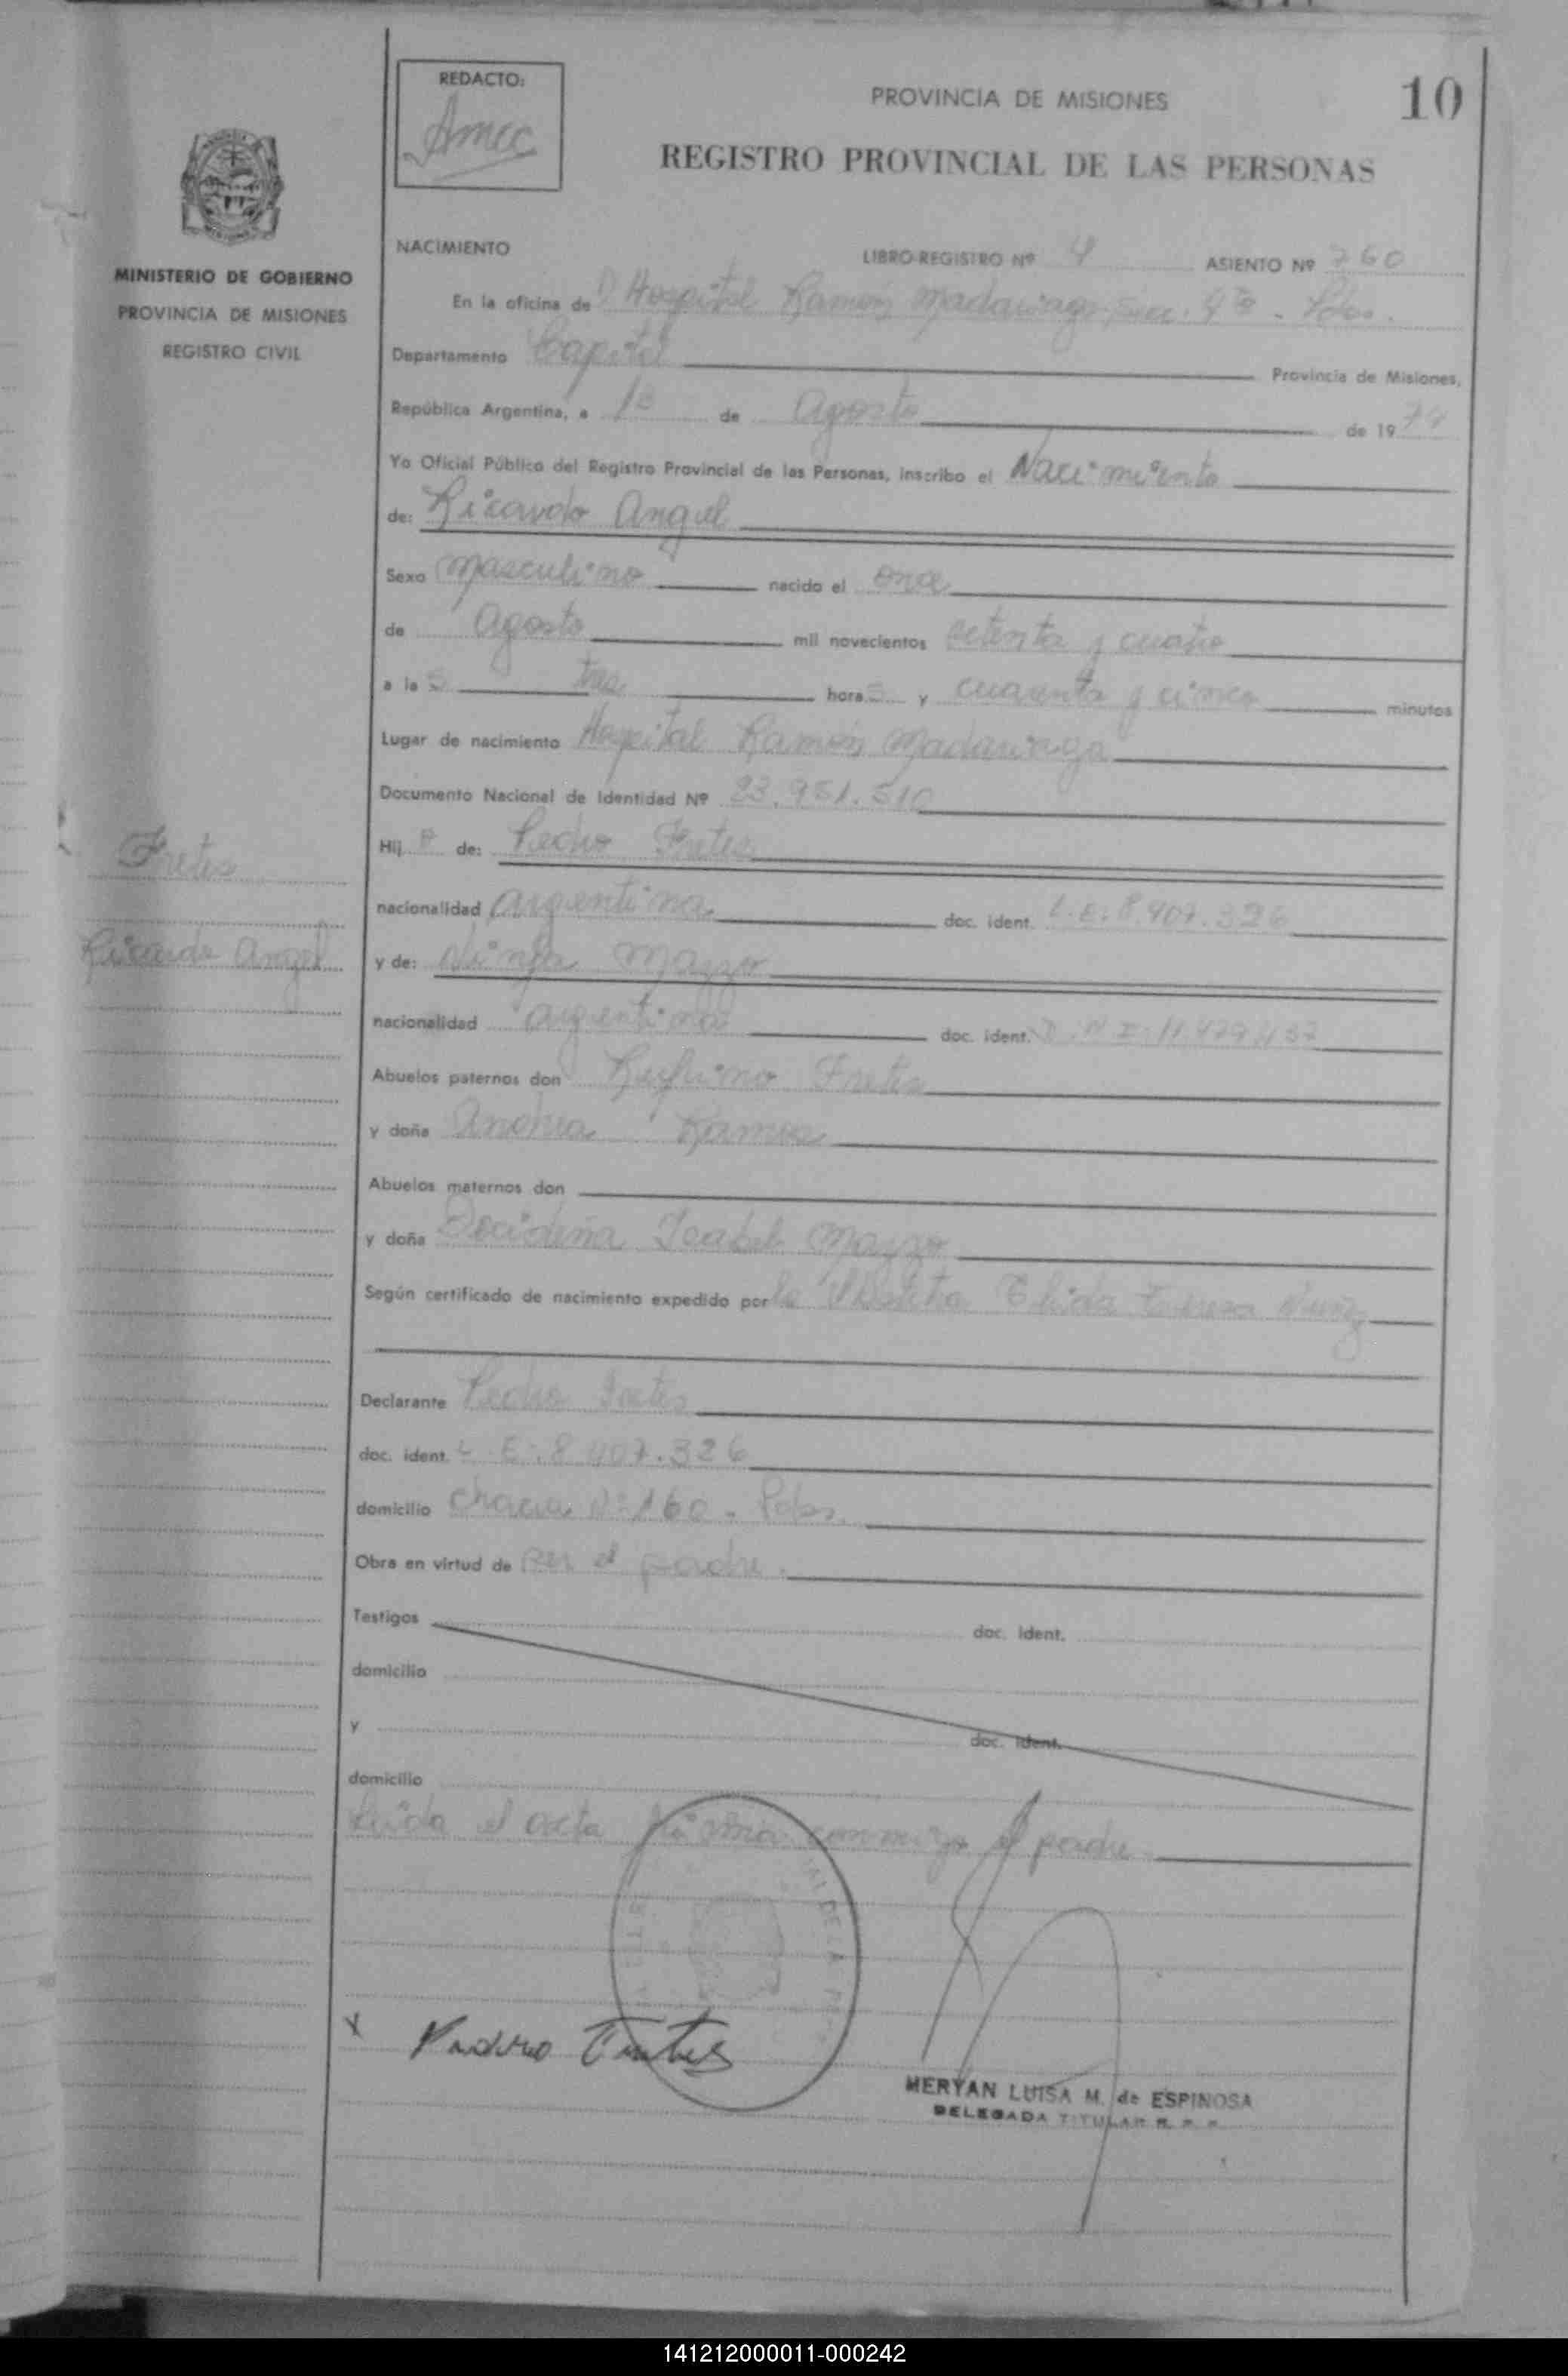 REDACTO:
PROVINCIA DE MISIONES
10
REGISTRO PROVINCIAL DE LAS PERSONAS
MINISTERIO DE GOBIERNO
PROVINCIA DE MISIONES
REGISTRO CIVIL
NACIMIENTO LIBRO-REGISTRO Nº 4 ASIENTO Nº 760
En la oficina de Hospital Ramón Madariaga, Sec. 4ta - Pdas.
Departamento Capital Provincia de Misiones,
República Argentina, a 13 de Agosto de 1974
Yo Oficial Público del Registro Provincial de las Personas, inscribo el Nacimiento
de: Ricardo Angel
Sexo Masculino nacido el once
de Agosto mil novecientos setenta y cuatro
a las tres horas y cuarenta y cinco minutos
Lugar de nacimiento Hospital Ramón Madariaga
Documento Nacional de Identidad Nº 23.951.510
Hijo de: Pedro Fretes
Fretes
nacionalidad argentina doc. ident. L.E: 8.407.326
Ricardo Angel
y de: Ninfa Mazzo
nacionalidad argentina doc. ident. D.N.I: 11.479.137
Abuelos paternos don Rufino Fretes
y doña Andrea Ramos
Abuelos maternos don
y doña Isabel Mazzo
Según certificado de nacimiento expedido por la Elida Teresa Nuñez
Declarante Pedro Fretes
doc. ident. L.E: 8.407.326
domicilio Chacra Nº 160 - Pdas.
Obra en virtud de ser el padre.
Testigos doc. ident.
domicilio
y doc. ident.
domicilio
Leida el acta firma conmigo el padre
x Pedro Fretes
MERYAN LUISA M. de ESPINOSA
DELEGADA TITULAR R. P. P.
141212000011-000242